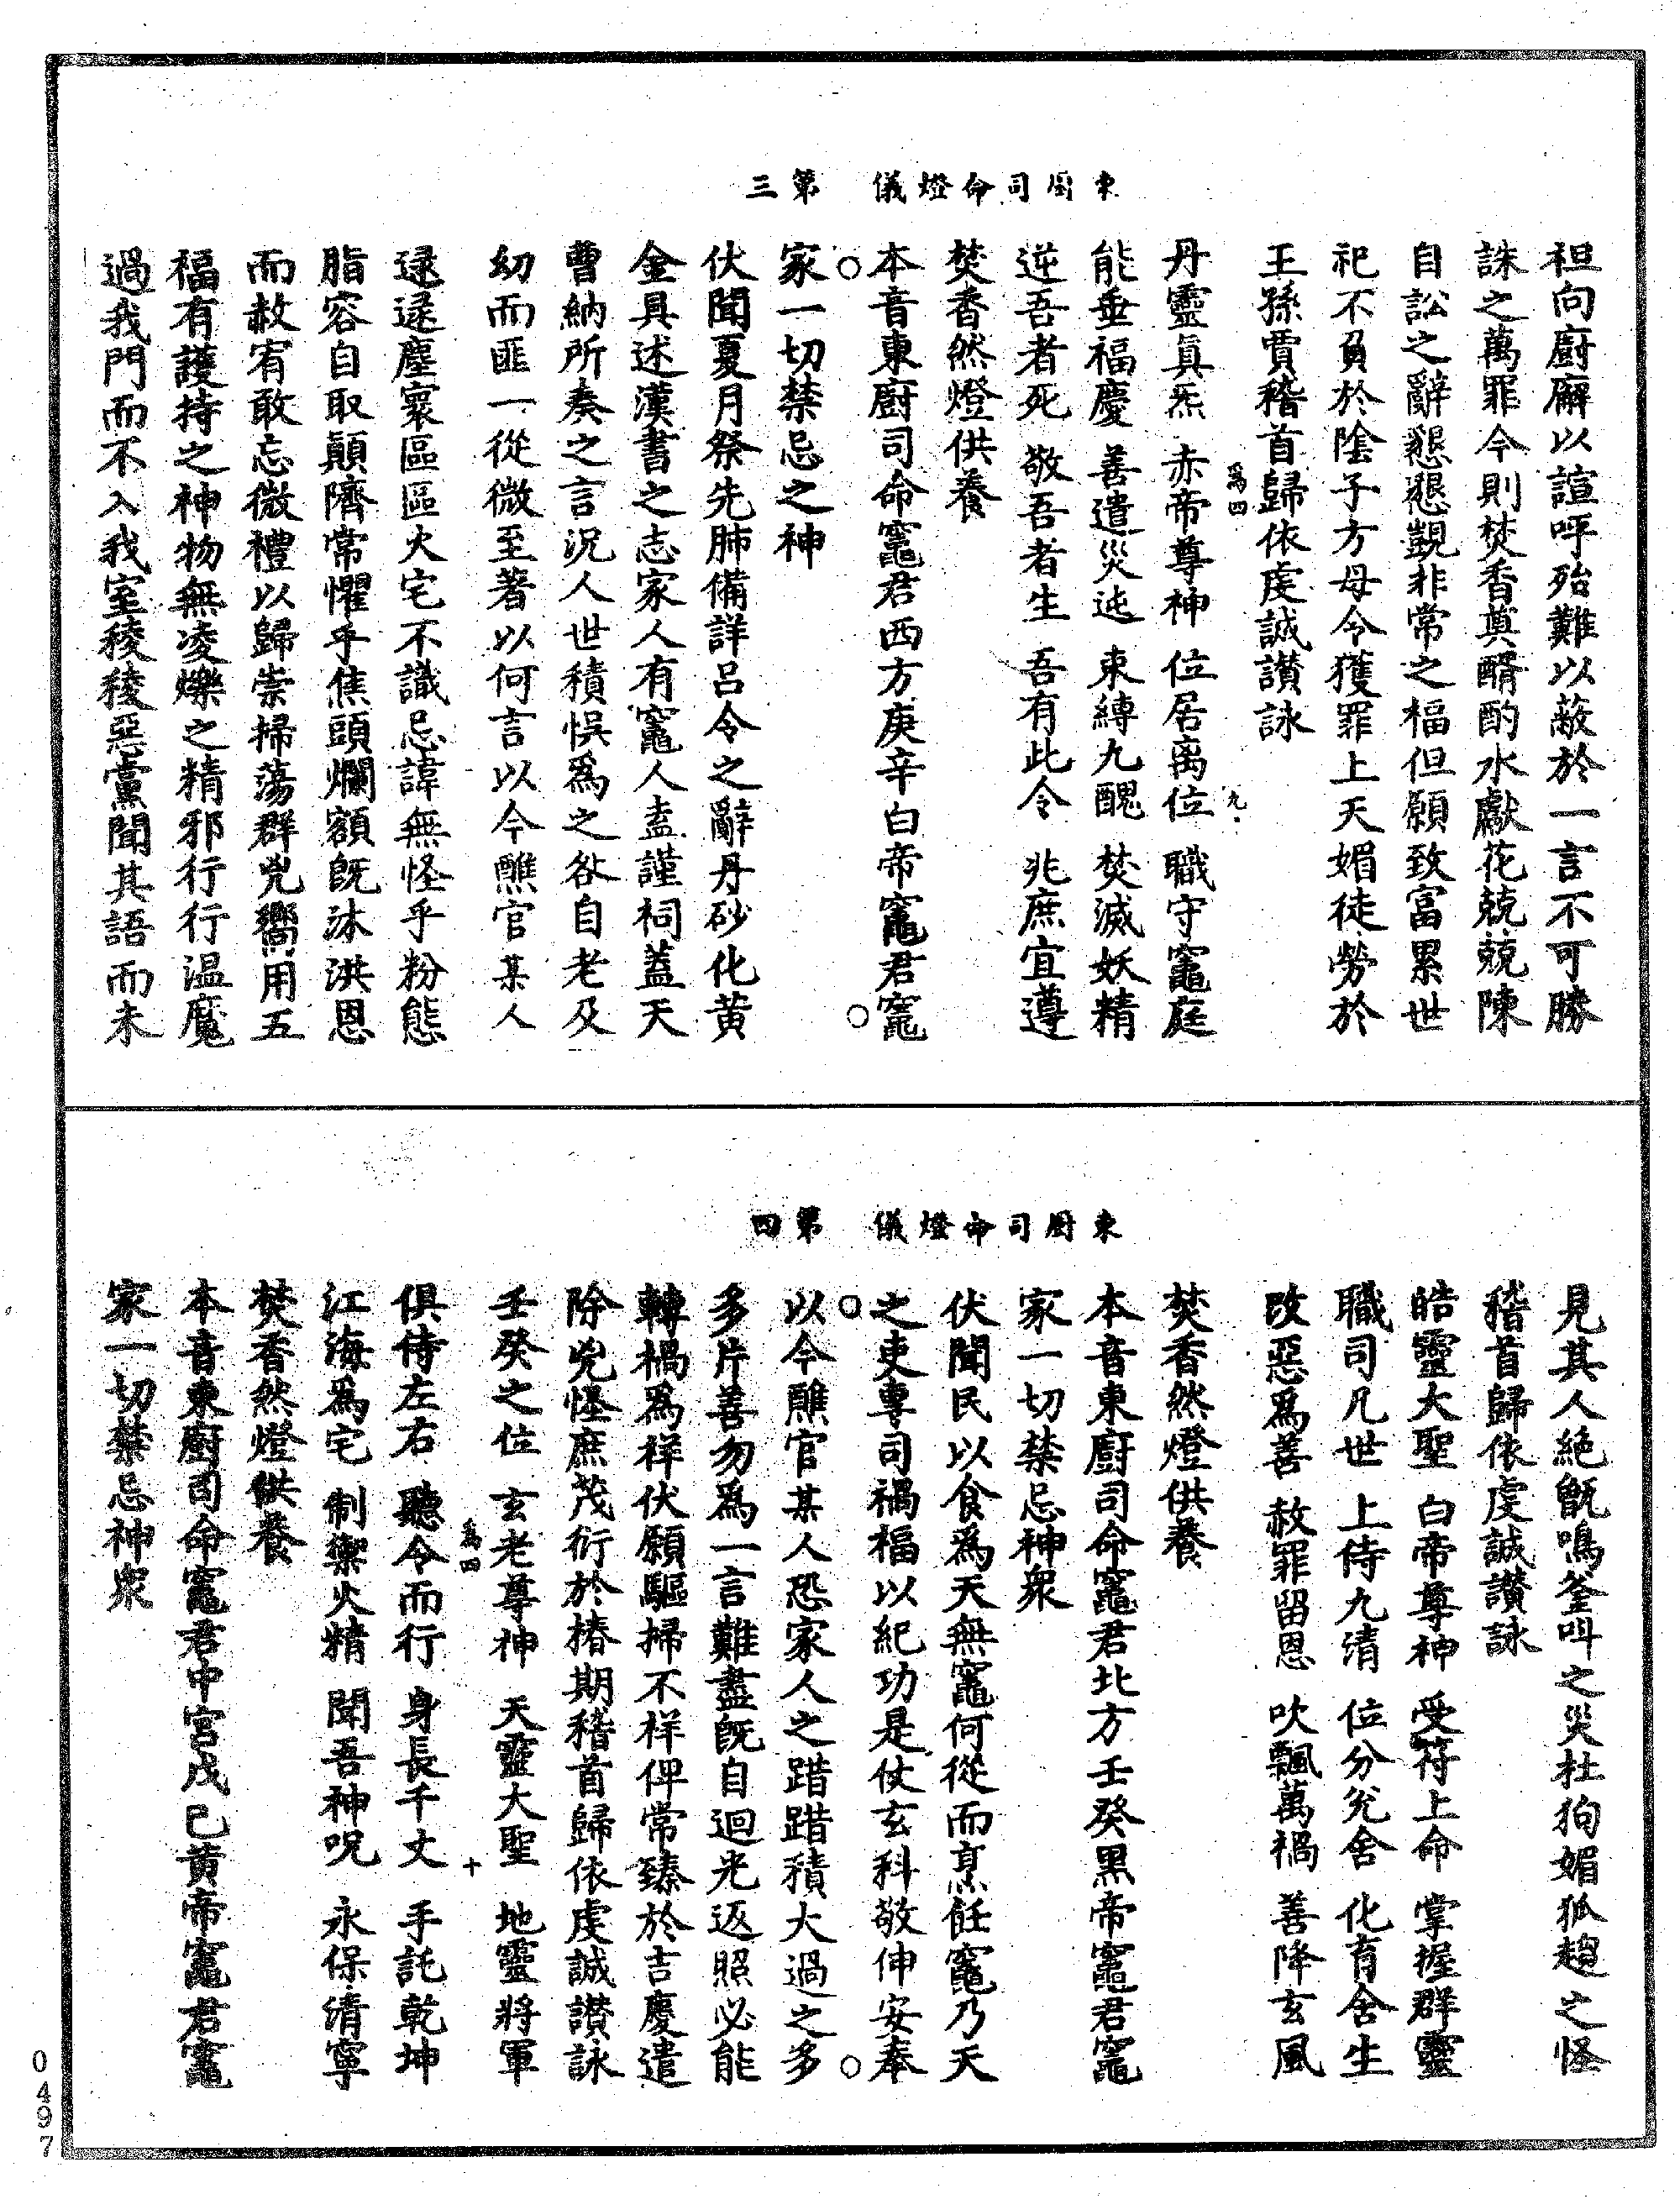 東厨司命燈儀　第三
袒向廚廨以諠呼殆難以蔽於一言不可勝
誅之萬罪今則焚香奠醑酌水獻花兢兢陳
自訟之辭懇懇覬非常之福但願致富累世
祀不負於陰子方母令獲罪上天媚徒勞於
王孫賈稽首歸依虔誠讃詠
丹靈眞炁　赤帝尊神　位居离位　職守竈庭
能垂福慶　善遣災迍　束縛九醜　焚滅妖精
逆吾者死　敬吾者生　吾有此令　兆庶宜遵
焚香然燈供養
本音東廚司命竈君西方庚辛白帝竈君竈
家一切禁忌之神
伏聞夏月祭先肺備詳呂令之辭丹砂化黃
金具述漢書之志家人有竈人盍謹祠蓋天
曹納所奏之言況人世積悮爲之咎自老及
幼而匪一從微至著以何言以今醮官某人
逯逯塵寰區區火宅不識忌諱無怪乎粉態
脂容自取顛隮常懼乎焦頭爛額旣沐洪恩
而赦宥敢忘微禮以歸崇掃蕩群兇嚮用五
福有護持之神物無凌爍之精邪行行温魔
過我門而不入我室稜稜惡黨聞其語而未
爲四
九
東厨司命燈儀　第四
見其人絶甑鳴釜呌之災杜狗媚狐趨之怪
稽首歸依虔誠讃詠
皓靈大聖　白帝尊神　受符上命　掌握群靈
職司凡世　上侍九清　位分兊舍　化育含生
改惡爲善　赦罪留恩　吹飄萬禍　善降玄風
焚香然燈供養
本音東廚司命竈君北方壬癸黑帝竈君竈
家一切禁忌神衆
伏聞民以食爲天無竈何從而烹飪竈乃天
之吏專司禍福以紀功是仗玄科敬伸安奉
以今醮官某人恐家人之踖踖積大過之多
多片善勿爲一言難盡旣自迴光返照必能
轉禍爲祥伏願驅掃不祥俾常臻於吉慶遣
除兇怪庶茂衍於椿期稽首歸依虔誠讃詠
壬癸之位　玄老尊神　天靈大聖　地靈將軍
俱侍左右　聽令而行　身長千丈　手託乾坤
江海爲宅　制禦火精　聞吾神呪　永保清寧
焚香然燈供養
本音東廚司命竈君中宮戊巳黃帝竈君竈
家一切禁忌神衆
爲四
十
0497